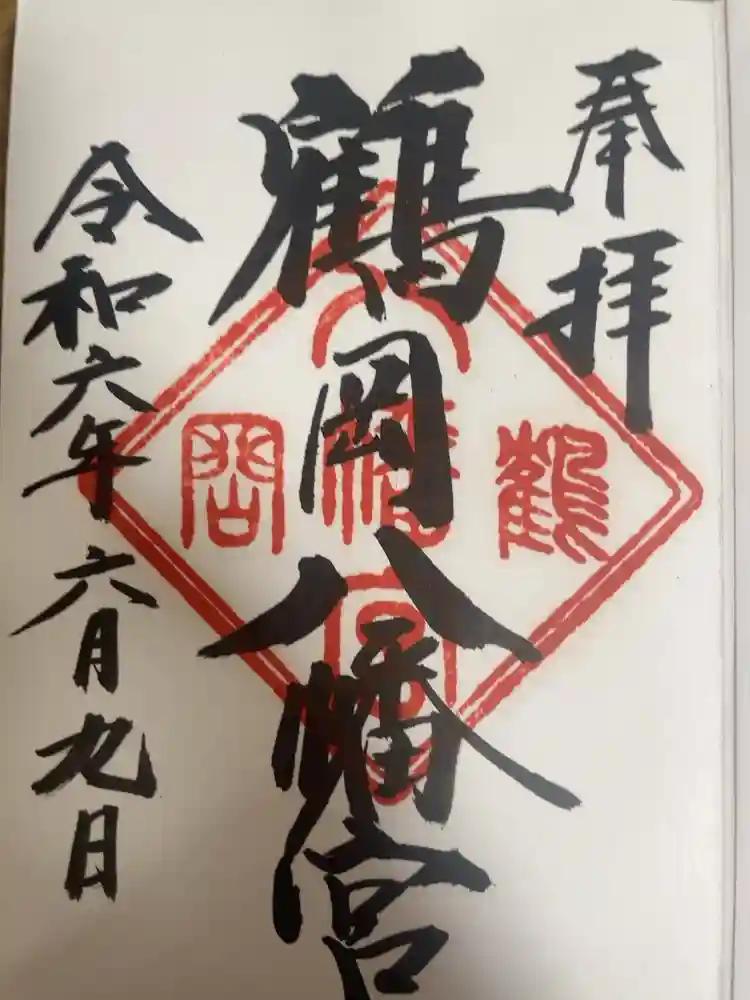 奉拝
鶴岡八幡宮
令和六年六月九日
鶴
岡
八
幡
宮